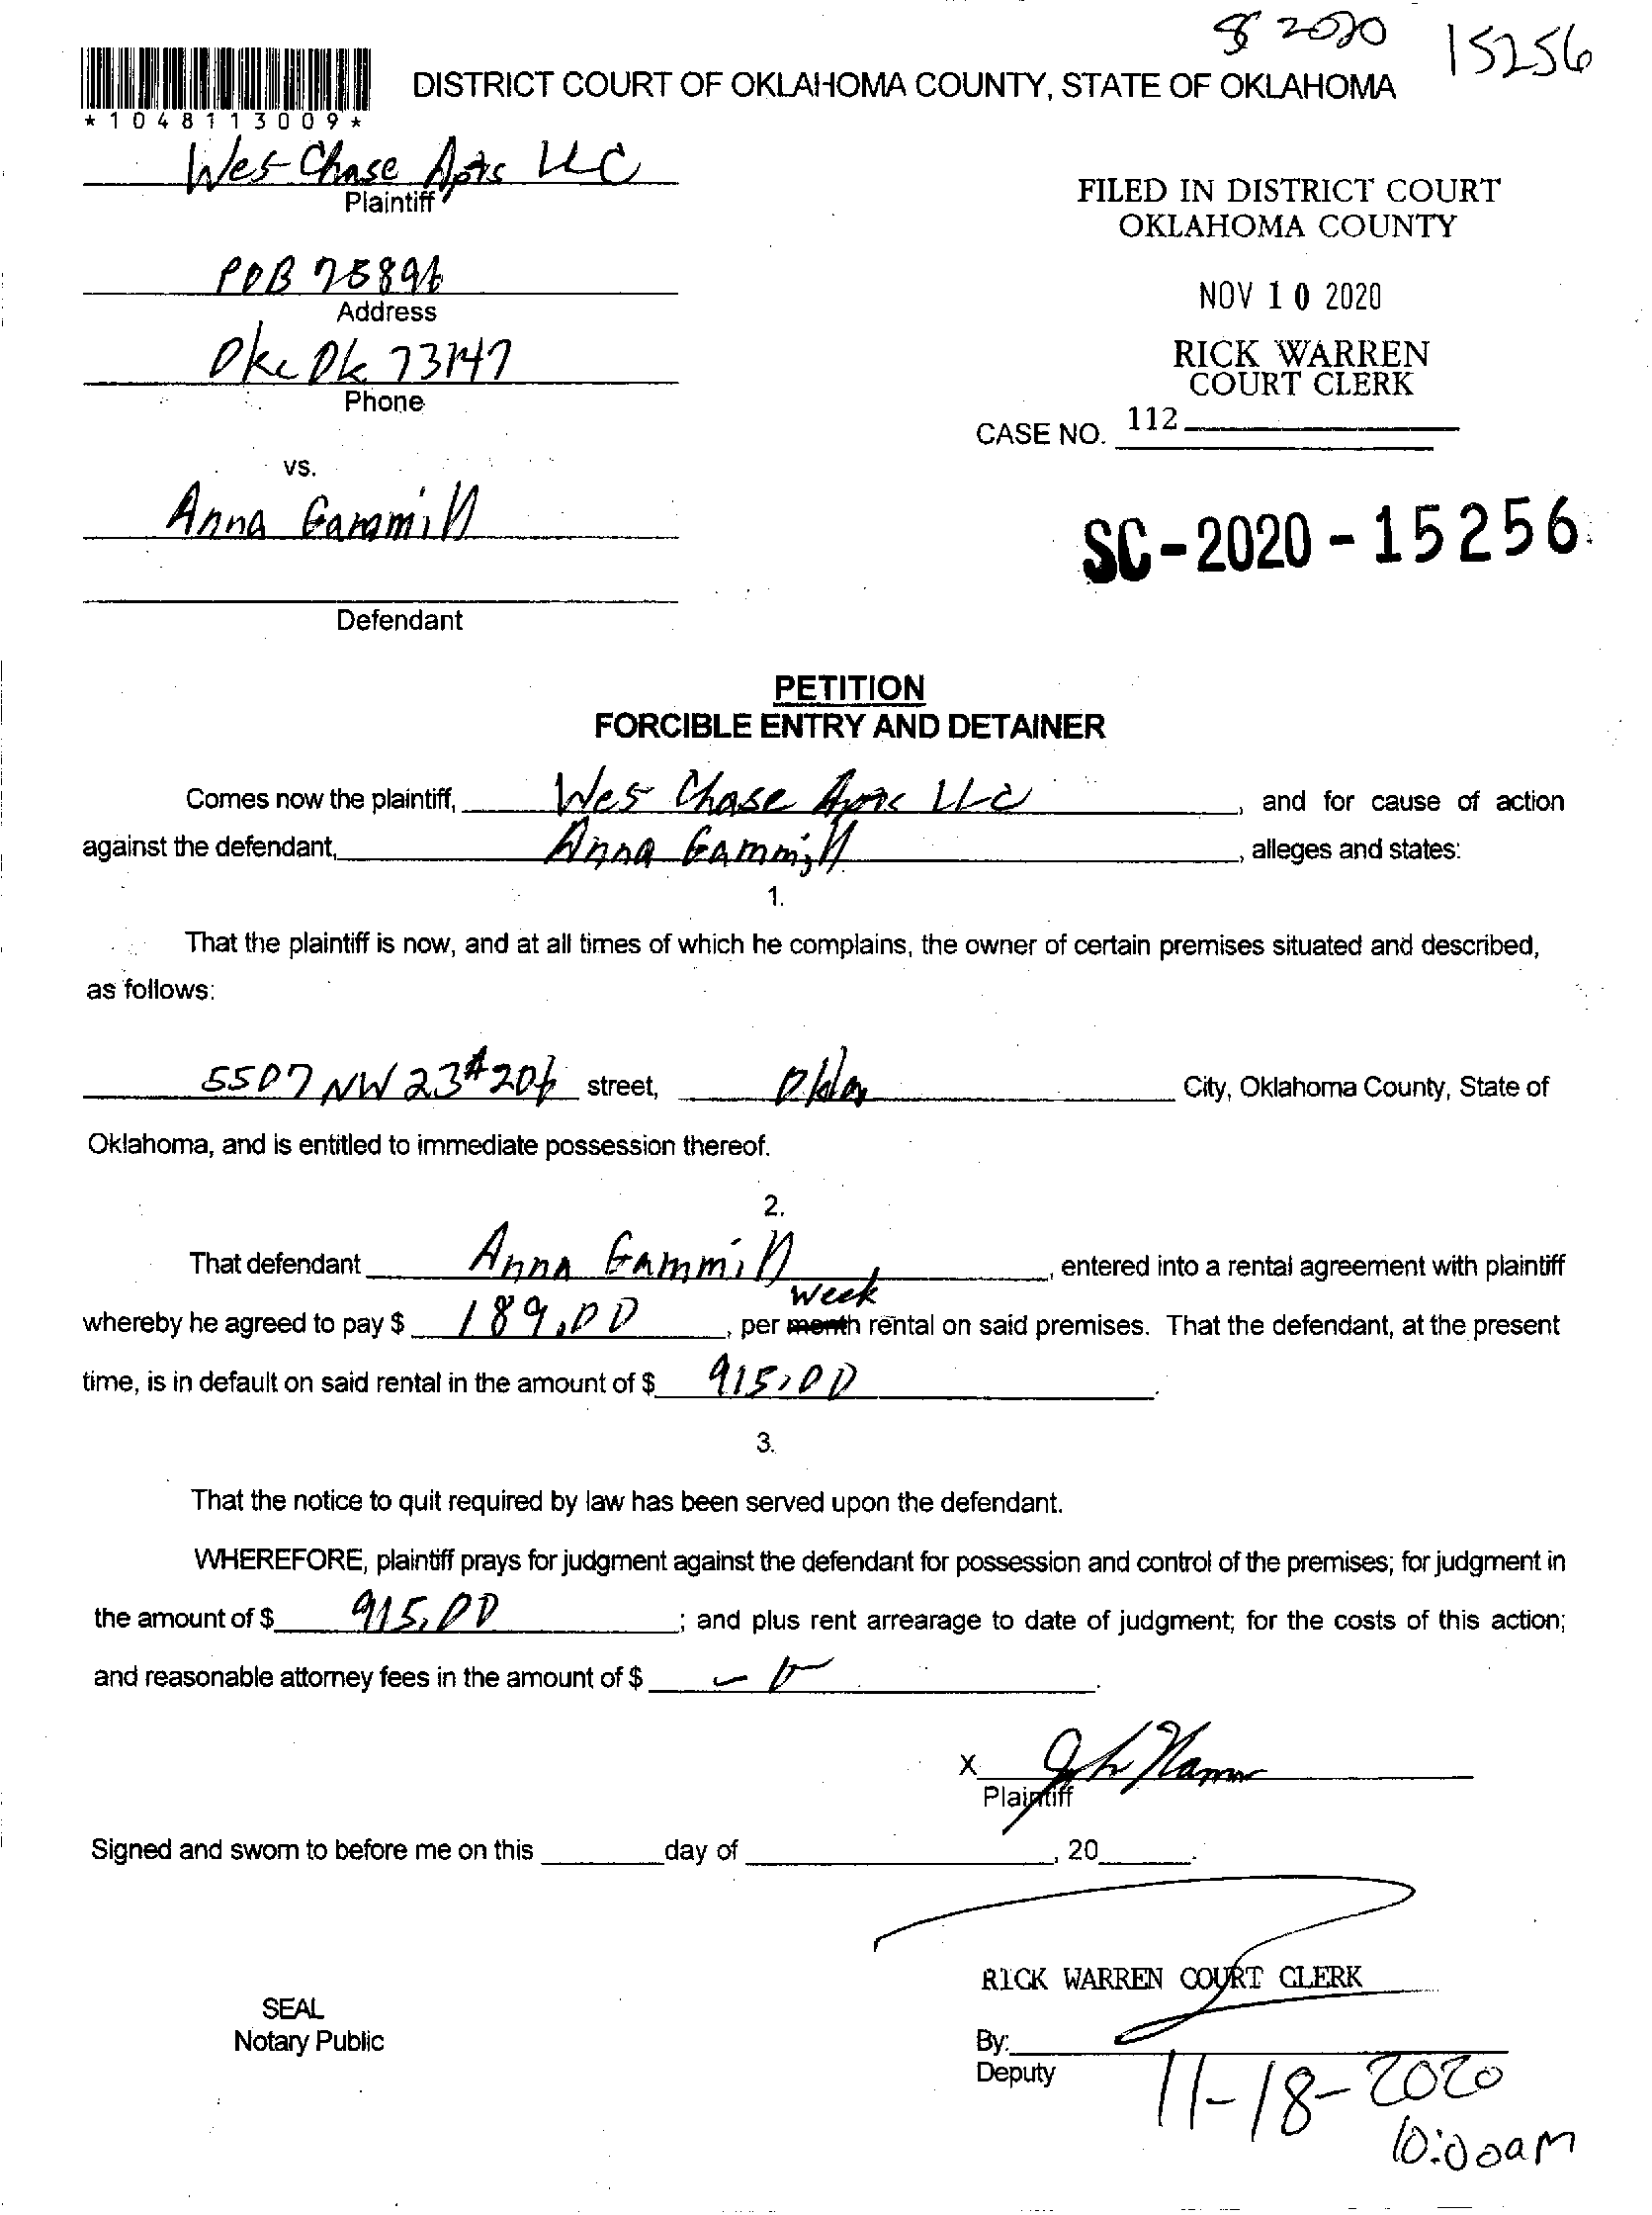 SC 2020 15256
DISTRICT COURT OF OKLAHOMA COUNTY, STATE OF OKLAHOMA
*1048113009*
Wes Chase Apts LLC
Plaintiff
FILED IN DISTRICT COURT
OKLAHOMA COUNTY
POB 75896
Address
NOV 10 2020
Okc Ok 73147
Phone
RICK WARREN
COURT CLERK
CASE NO. 112
vs.
Anna Gammill
SC-2020-15256
Defendant
PETITION
FORCIBLE ENTRY AND DETAINER
Comes now the plaintiff, Wes Chase Apts LLC, and for cause of action
against the defendant, Anna Gammill, alleges and states:
1.
That the plaintiff is now, and at all times of which he complains, the owner of certain premises situated and described,
as follows:
5507 NW 23 #206 street, Okla City, Oklahoma County, State of
Oklahoma, and is entitled to immediate possession thereof.
2.
That defendant Anna Gammill, entered into a rental agreement with plaintiff
week
whereby he agreed to pay $ 189.00, per month rental on said premises. That the defendant, at the present
time, is in default on said rental in the amount of $ 915.00.
3.
That the notice to quit required by law has been served upon the defendant.
WHEREFORE, plaintiff prays for judgment against the defendant for possession and control of the premises; for judgment in
the amount of $ 915.00; and plus rent arrearage to date of judgment; for the costs of this action;
and reasonable attorney fees in the amount of $
X
Plaintiff
Signed and sworn to before me on this day of , 20 .
RICK WARREN COURT CLERK
SEAL
Notary Public
By:
Deputy
11-18-2020
10:00am